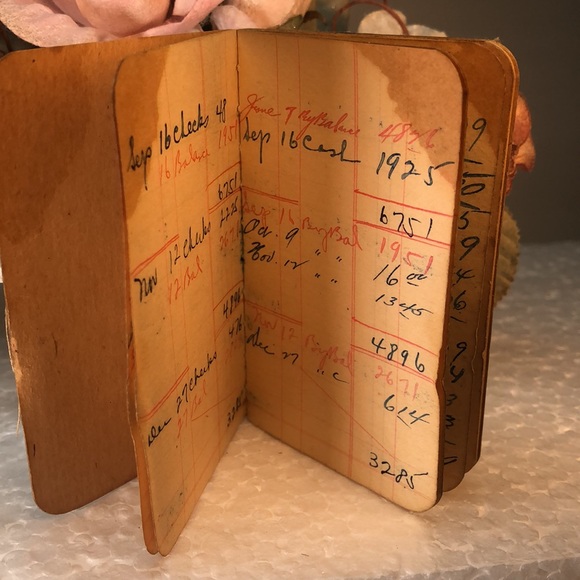 Sep 16 checks 48
16 Balance 195
6751
Nov 12 checks 2225
12 Bal 267
4896
Dec 27 checks
27 Bal
328
June 9 By Balance 48
Sep 16 Cash 1925
6751
Sep 16 By Bal 1951
Oct. 9 " " 16 00
Nov. 12 " " 13 45
4896
Nov 12 By Bal 2671
Dec 27 " c 614
3285
9
5
9
4
6
9
3